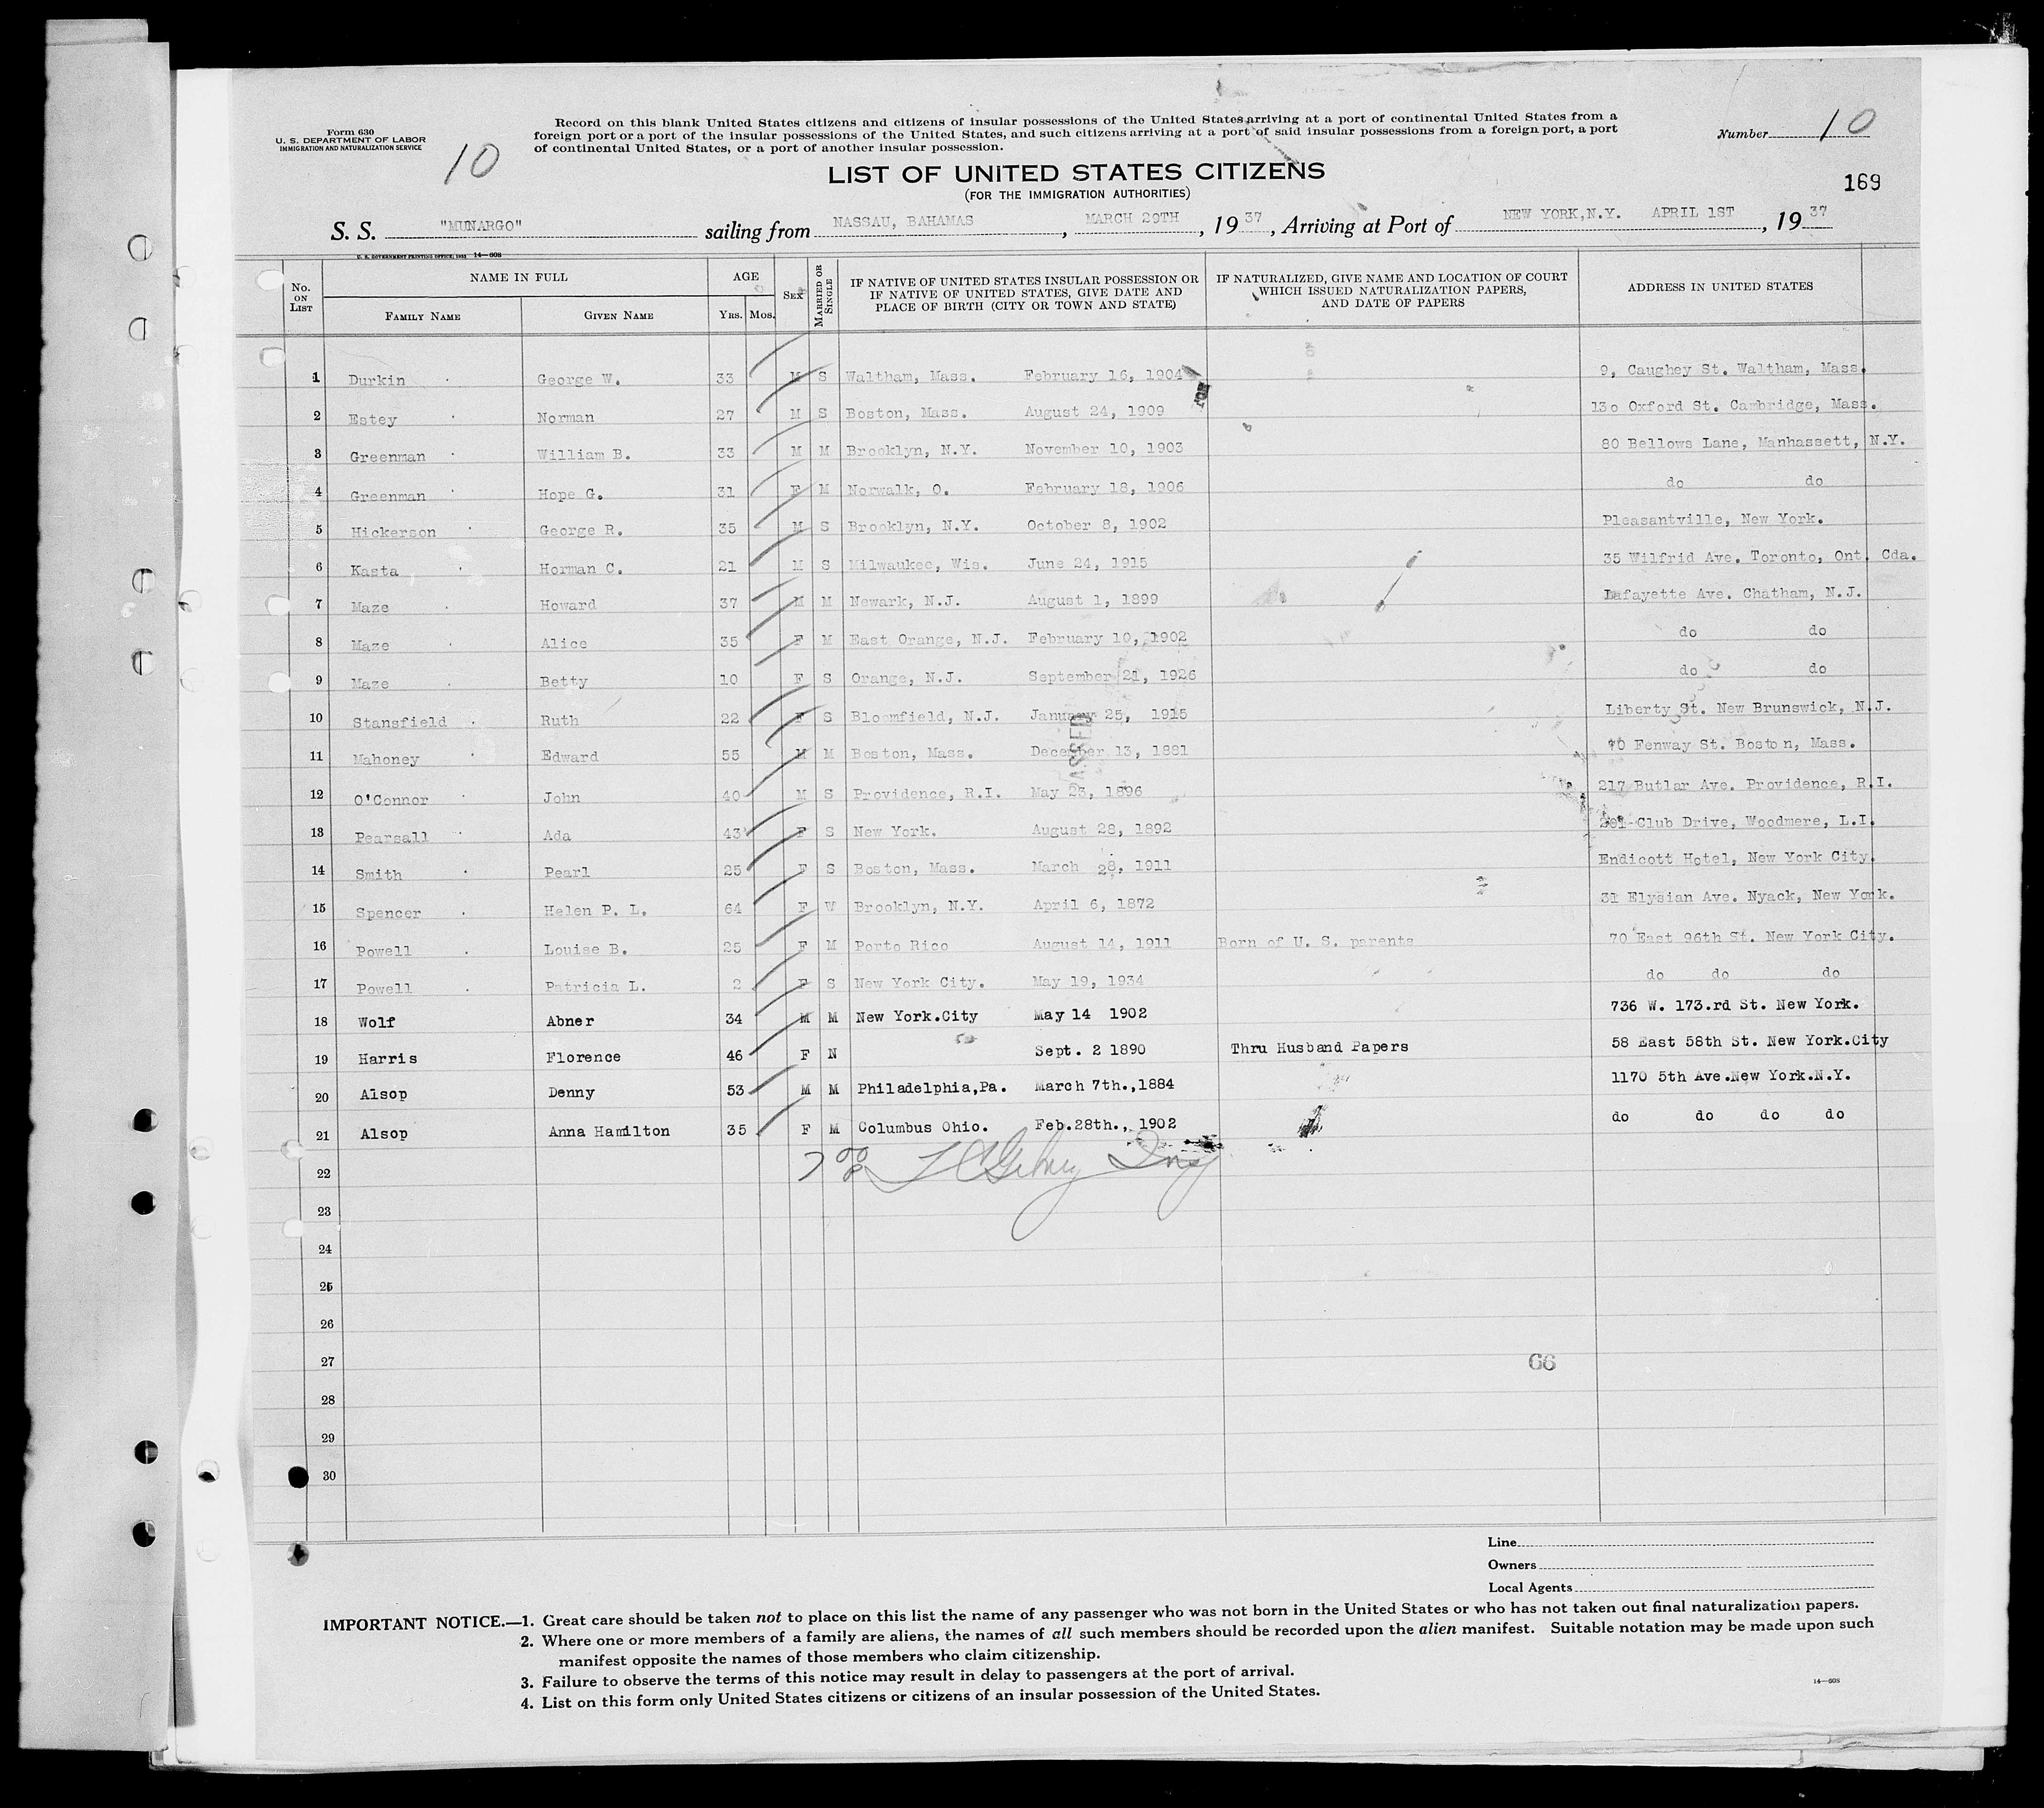 Form 630
U. S. DEPARTMENT OF LABOR
IMMIGRATION AND NATURALIZATION SERVICE
10
Record on this blank United States citizens and citizens of insular possessions of the United States arriving at a port of continental United States from a
foreign port or a port of the insular possessions of the United States, and such citizens arriving at a port of said insular possessions from a foreign port, a port
of continental United States, or a port of another insular possession.
Number 10
LIST OF UNITED STATES CITIZENS
(FOR THE IMMIGRATION AUTHORITIES)
169
S. S. "MUNARGO" sailing from NASSAU, BAHAMAS, MARCH 29TH, 1937, Arriving at Port of NEW YORK,N.Y. APRIL 1ST, 1937
U. S. GOVERNMENT PRINTING OFFICE: 1933 14—608
No. ON LIST NAME IN FULL AGE SEX MARRIED OR SINGLE IF NATIVE OF UNITED STATES INSULAR POSSESSION OR IF NATIVE OF UNITED STATES, GIVE DATE AND PLACE OF BIRTH (CITY OR TOWN AND STATE) IF NATURALIZED, GIVE NAME AND LOCATION OF COURT WHICH ISSUED NATURALIZATION PAPERS, AND DATE OF PAPERS ADDRESS IN UNITED STATES
FAMILY NAME GIVEN NAME YRS. MOS.
1 Durkin George W. 33 M S Waltham, Mass. February 16, 1904 9, Caughey St. Waltham, Mass.
2 Estey Norman 27 M S Boston, Mass. August 24, 1909 130 Oxford St. Cambridge, Mass.
3 Greenman William B. 33 M M Brooklyn, N.Y. November 10, 1903 80 Bellows Lane, Manhassett, N.Y.
4 Greenman Hope G. 31 F M Norwalk, O. February 18, 1906 do do
5 Hickerson George R. 35 M S Brooklyn, N.Y. October 8, 1902 Pleasantville, New York.
6 Kasta Horman C. 21 M S Milwaukee, Wis. June 24, 1915 35 Wilfrid Ave. Toronto, Ont. Cda.
7 Maze Howard 37 M M Newark, N.J. August 1, 1899 Lafayette Ave. Chatham, N.J.
8 Maze Alice 35 F M East Orange, N.J. February 10, 1902 do do
9 Maze Betty 10 F S Orange, N.J. September 21, 1926 do do
10 Stansfield Ruth 22 F S Bloomfield, N.J. January 25, 1915 Liberty St. New Brunswick, N.J.
11 Mahoney Edward 55 M M Boston, Mass. December 13, 1881 70 Fenway St. Boston, Mass.
PASSED
12 O'Connor John 40 M S Providence, R.I. May 23, 1896 217 Butlar Ave. Providence, R.I.
13 Pearsall Ada 43 F S New York. August 28, 1892 Club Drive, Woodmere, L.I.
14 Smith Pearl 25 F S Boston, Mass. March 28, 1911 Endicott Hotel, New York City.
15 Spencer Helen P. L. 64 F W Brooklyn, N.Y. April 6, 1872 31 Elysian Ave. Nyack, New York.
16 Powell Louise B. 25 F M Porto Rico August 14, 1911 Born of U. S. parents 70 East 96th St. New York City.
17 Powell Patricia L. 2 F S New York City. May 19, 1934 do do do
18 Wolf Abner 34 M M New York.City May 14 1902 736 W. 173.rd St. New York.
19 Harris Florence 46 F N Sept. 2 1890 Thru Husband Papers 58 East 58th St. New York.City
20 Alsop Denny 53 M M Philadelphia,Pa. March 7th.,1884 1170 5th Ave.New York.N.Y.
21 Alsop Anna Hamilton 35 F M Columbus Ohio. Feb.28th., 1902 do do do do
22
23
24
25
26
27 66
28
29
30
Line
Owners
Local Agents
IMPORTANT NOTICE.—1. Great care should be taken not to place on this list the name of any passenger who was not born in the United States or who has not taken out final naturalization papers.
2. Where one or more members of a family are aliens, the names of all such members should be recorded upon the alien manifest. Suitable notation may be made upon such
manifest opposite the names of those members who claim citizenship.
3. Failure to observe the terms of this notice may result in delay to passengers at the port of arrival.
4. List on this form only United States citizens or citizens of an insular possession of the United States.
14—608